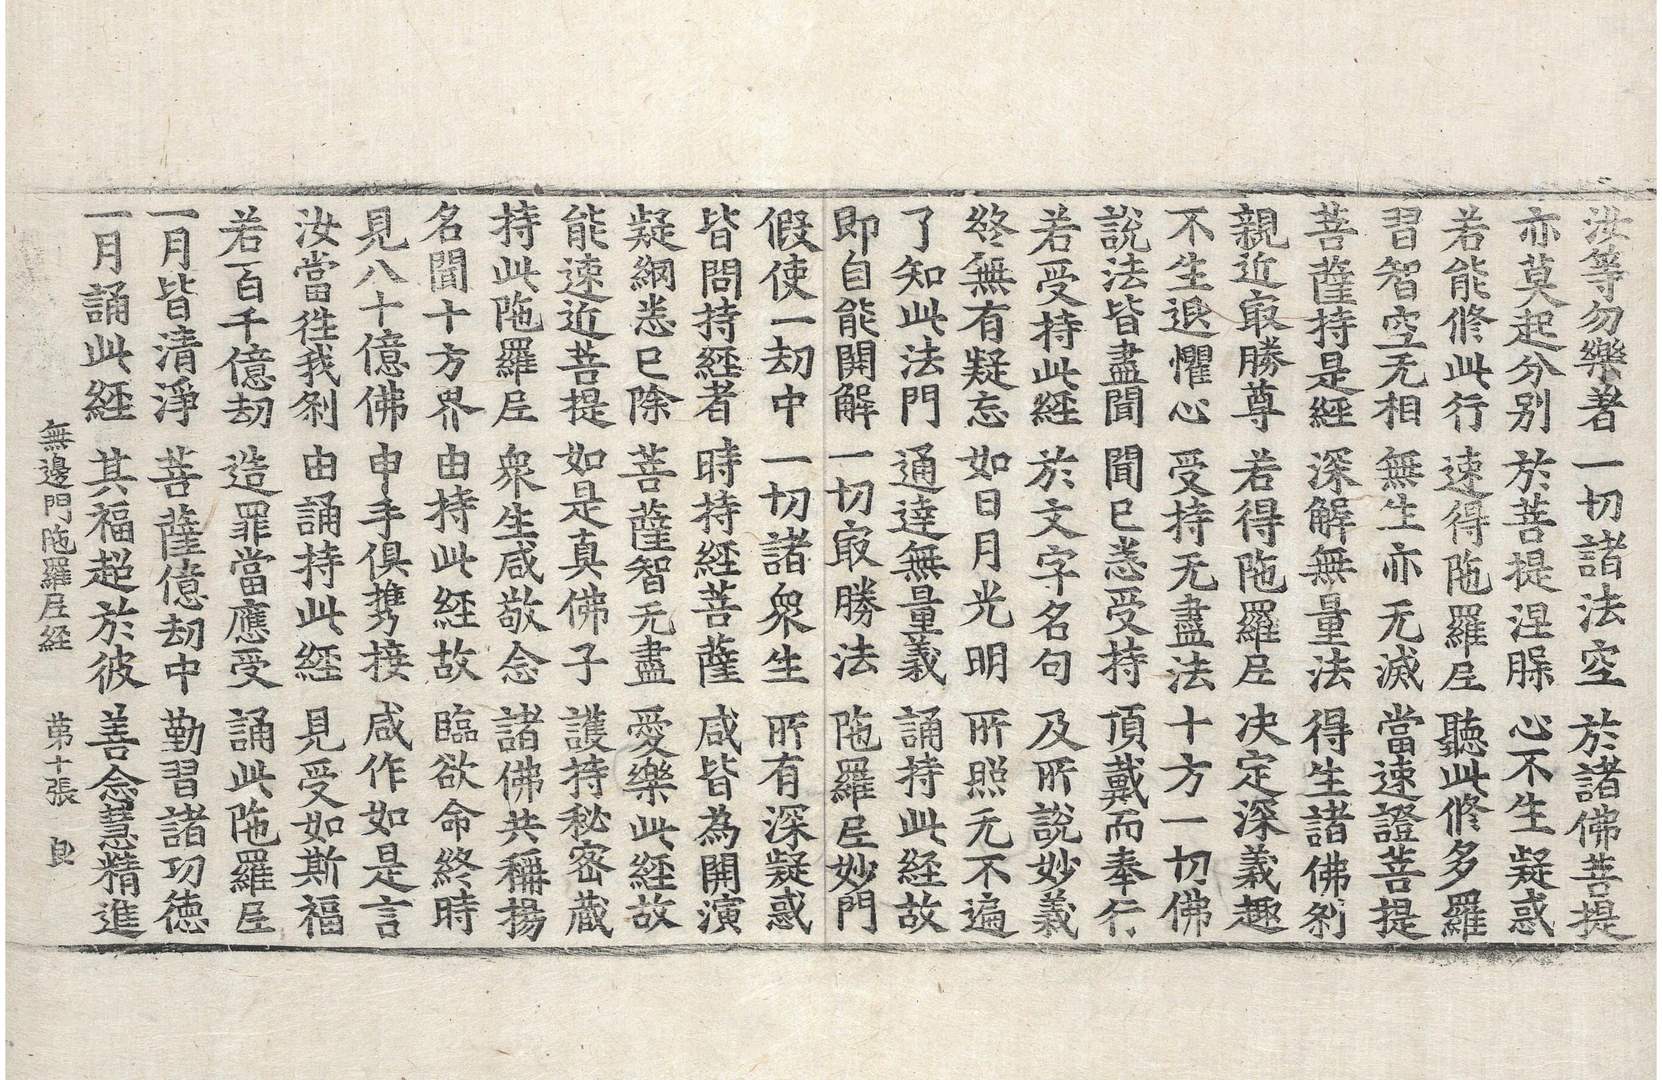 汝等勿樂著 一切諸法空 於諸佛菩提
亦莫起分別 於菩提涅槃 心不生疑惑
若能修此行 速得陁羅𡰱 聽此修多羅
習智空无相 無生亦无滅 當速證菩提
菩薩持是經 深解無量法 得生諸佛刹
親近㝡勝尊 若得陁羅𡰱 决定深義趣
不生退懼心 受持无盡法 十方一切佛
說法皆盡聞 聞已悉受持 頂戴而奉行
若受持此經 於文字名句 及所說妙義
終無有疑忘 如日月光明 所照无不遍
了知此法門 通達無量義 誦持此經故
即自能開解 一切㝡勝法 陁羅𡰱妙門
假使一劫中 一切諸衆生 所有深疑惑
皆問持經者 時持經菩薩 咸皆為開演
疑網悉已除 菩薩智无盡 愛樂此經故
能速近菩提 如是真佛子 護持秘密蔵
持此陁羅𡰱 衆生咸敬念 諸佛共稱揚
名聞十方界 由持此經故 臨欲命終時
見八十億佛 申手俱携接 咸作如是言
汝當徃我刹 由誦持此經 見受如斯福
若百千億劫 造罪當應受 誦此陁羅𡰱
一月皆清淨 菩薩億劫中 勤習諸功德
一月誦此經 其福超於彼 善念慧精進
無邊門陁羅𡰱経 苐十張